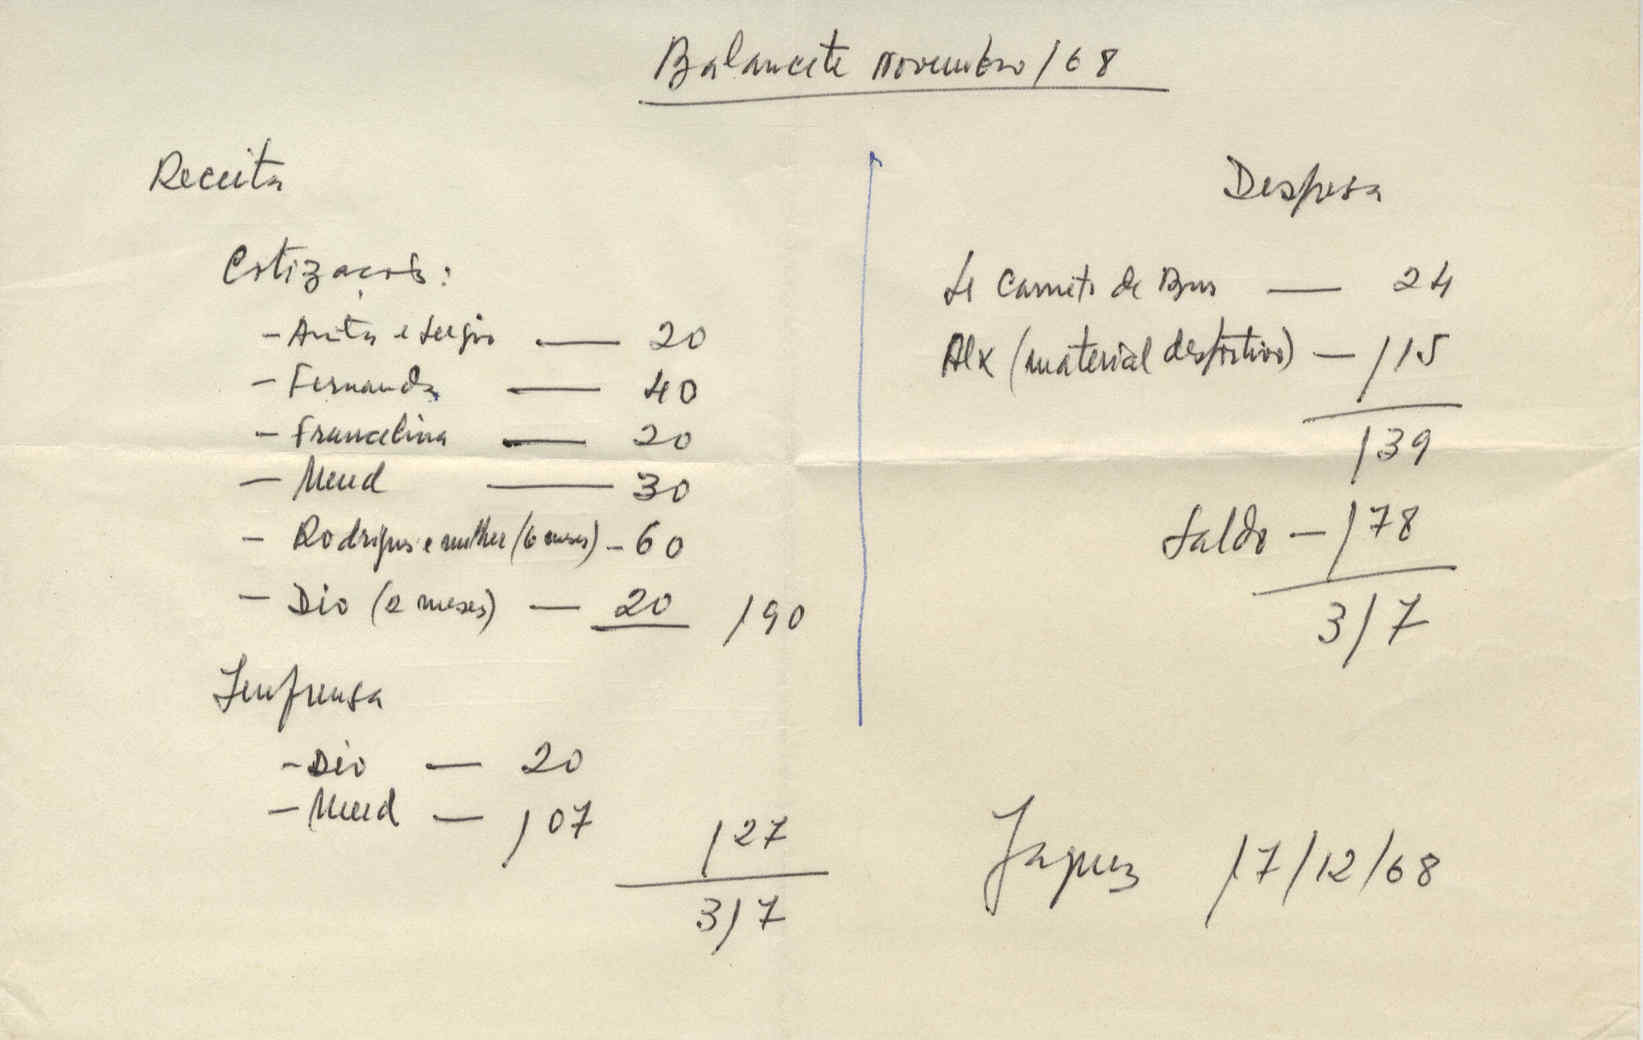 Balancete novembro/68
Receita
Cotizações:
- Anita e Sergio — 20
- Fernanda — 40
- Francelina — 20
- Mend — 30
- Rodrigues e mulher (6 meses) - 60
- Dio (2 meses) — 20 190
Imprensa
- Dio — 20
- Mend — 107
127
317
Despesa
4 Carnets de Bus — 24
Alx (material desportivo) — 115
139
Saldo — 178
317
Jaques 17/12/68